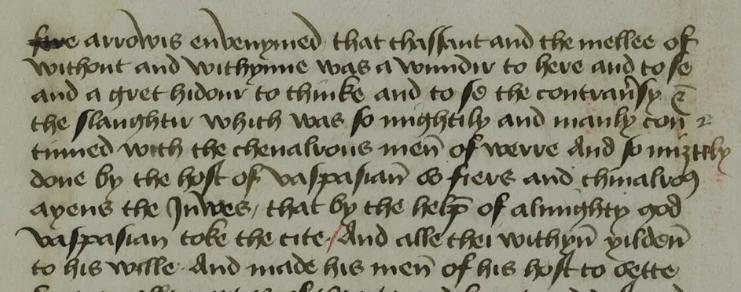 fire arrowis envenymed that thassaut and the mellee of
without and withynne was a wundir to here and to se
and a gret hidour to thinke and to se the contrauersy &
the slaughtir which was so mightily and manly con
tinued with the cheualrous men of werre And so miztily
done by the host of vaspasian os fiers and chiualros
ayens the Juwes / that by the help of almighty god
vaspasian toke the cite / And alle thei withyn yilden
to his wille And made his men of his host to sette